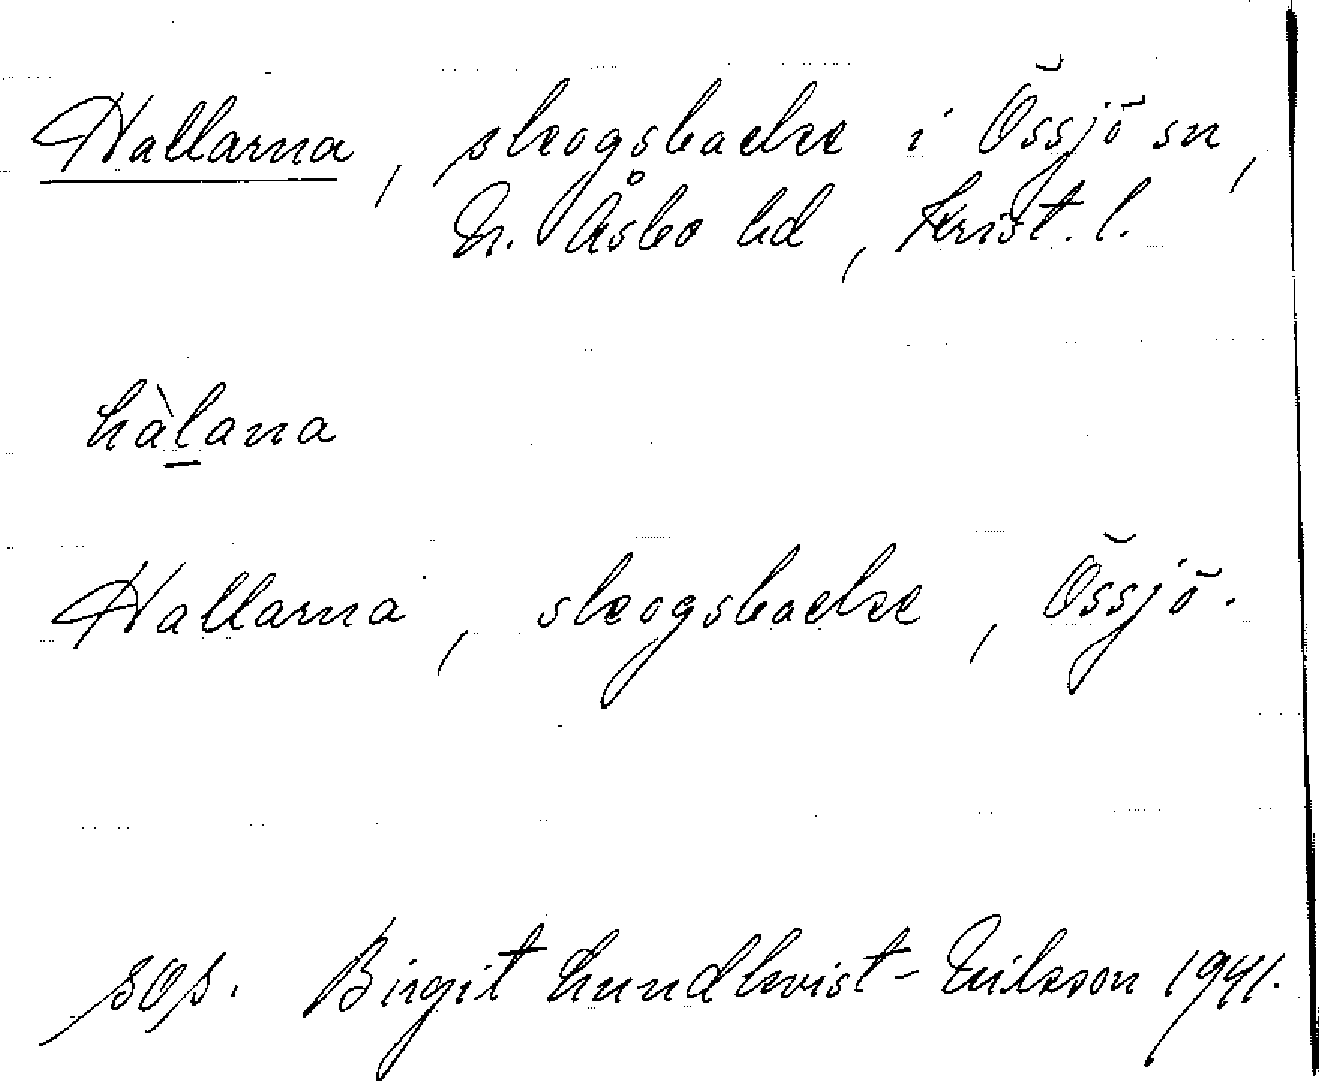 Hallarna, skogsbacke i Össjö sn,
N. Åsbo hd, Krist. l.
hàlana
Hallarna, skogsbacke, Össjö.
sos. Birgit Lundkvist-Nilsson 1941.